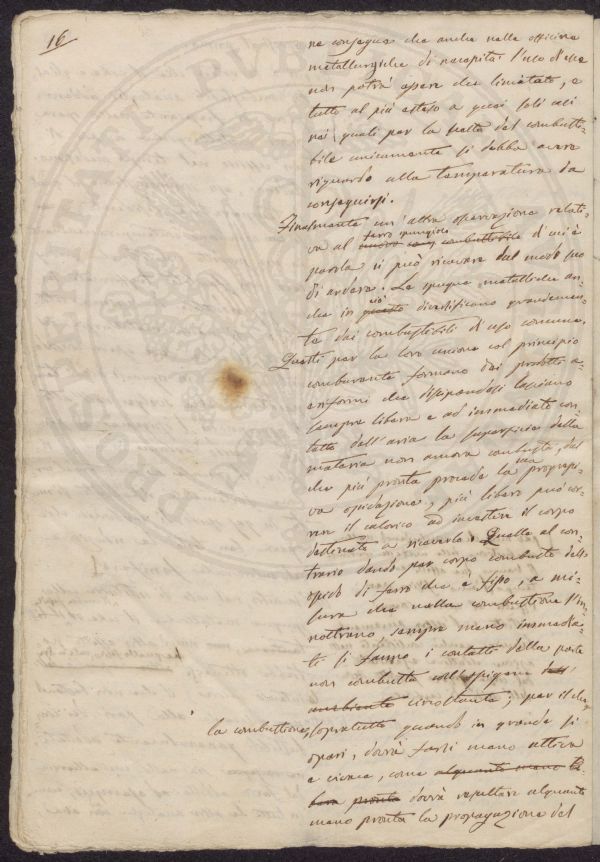 16
ne consegue che anche nelle officine
metallurgiche di necessità l'uso d'esse
non potrà essere che limitato, e
tutto al più esteso a quei soli casi
nei quali per la scelta del combusti-
bile unicamente si debba avere
riguardo alla temperatura da
conseguirsi.
Finalmente un'altra osservazione relati-
va al ferro spugnoso combustibile d'cui è
parola si può ricavare dal modo suo
di ardere. Le spugne metalliche an-
che in ciò diversificano grandemen-
te dai combustibili d'uso comune.
Questi per la loro unione col principio
comburente formano dei prodotti a-
eriformi che dissipandosi lasciano
sempre libera e ad immediato con-
tatto dell'aria la superficie della
materia non ancora combusta, dal
che più pronta procede la sua progressi-
va ossidazione, più libero può cor-
rere il calorico ad investire il corpo
destinato a riceverlo. Quelle al con-
trario dando per corpo combusto dell'os-
sido di ferro che è fisso, a mi-
sura che nella combustione s'in-
noltrano, sempre meno immedia-
ti si fanno i contatti della parte
non combusta coll'ossigeno
ambiente circostante; per il che
la combustione, sopratutto quando in grande si
operi, dovrà farsi meno attiva
e vivace, come alquanto meno li-
bera pronta dovrà risultare alquanto
meno pronta la propagazione del